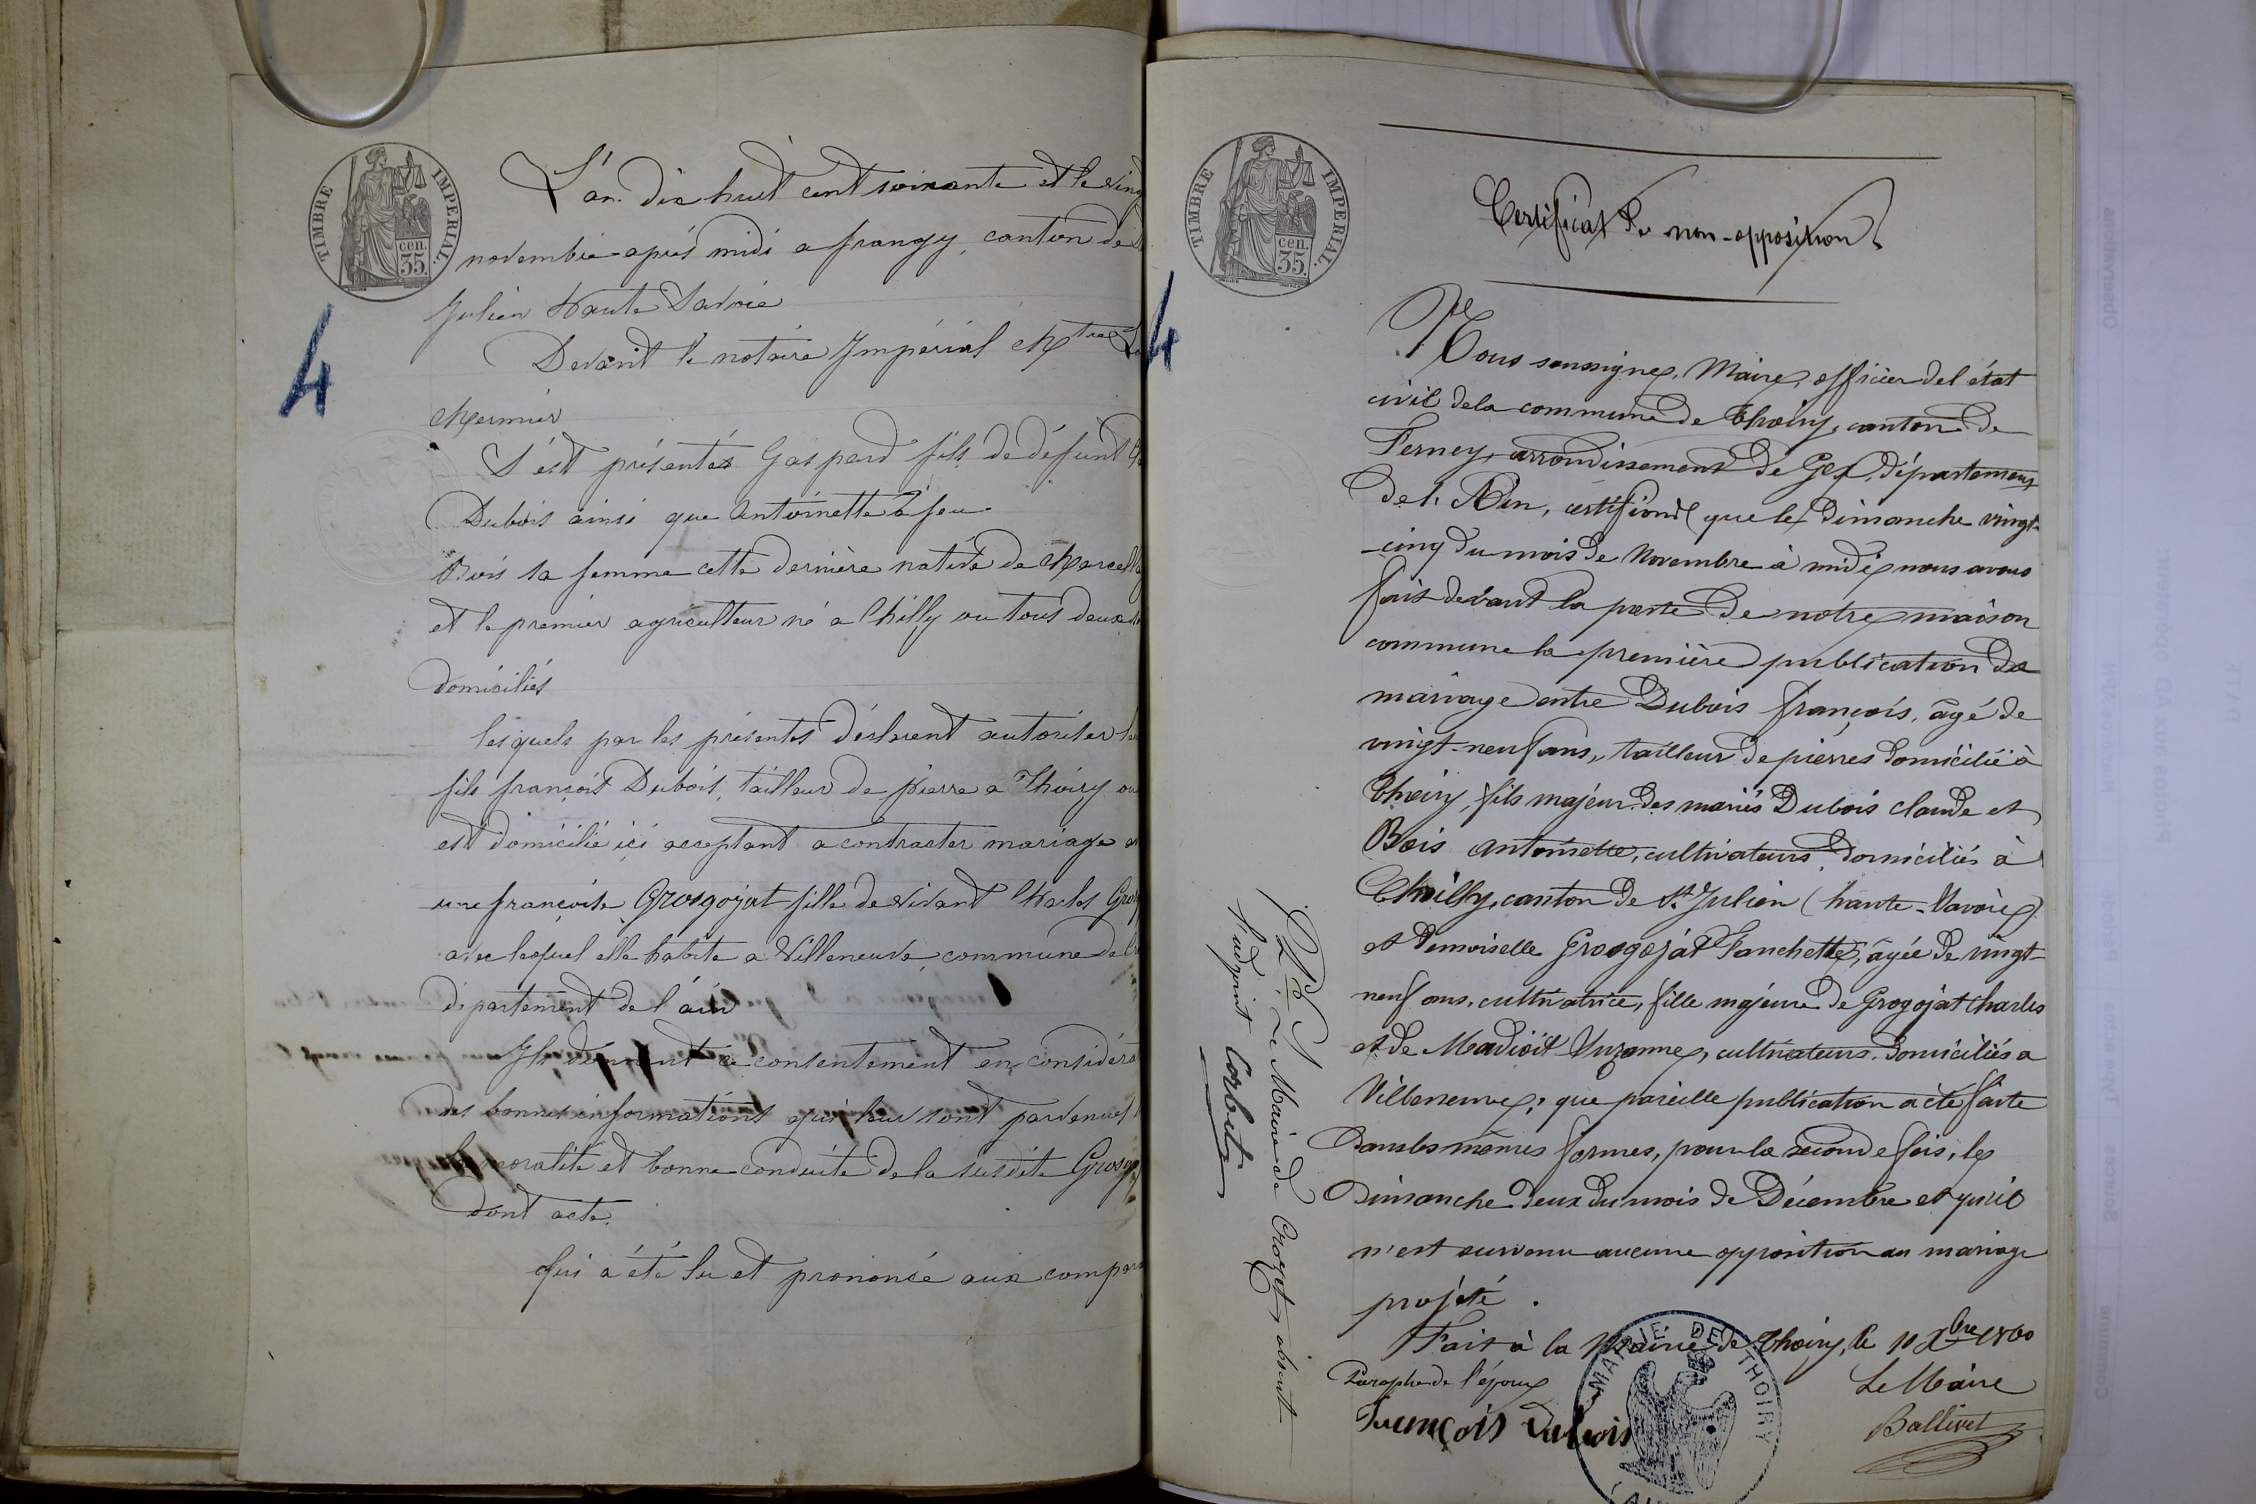 TIMBRE IMPERIAL
cen.
35.
4
L'an dix huit cent soixante et le vin
novembre après midi a frangy, canton de
Julien Haute Savoie
Devant le notaire Impérial
Mermier
S'est présentés Gaspard fils de défunt
Dubois ainsi que Antoinette à feu
Bois sa femme cette dernière native de
et le premier agriculteur né a Chilly ou tous deux
domiciliés
lesquels par les présentes déclarent autoriser
fils françois Dubois, tailleur de pierre a Thoiry ou
est domicilié ici acceptant a contracter mariage a
une françoise Grosgojat fille de vivant Charles Gros
avec lequel elle habite a Villeneuve, commune de
département de l'ain
Ils donnent ce consentement en considéra
des bonnes informations qui leur sont parvenues
la moralité et bonne conduite de la susdite Grosgo
dont acte.
Qui a été lu et prononcé aux compar
TIMBRE IMPERIAL.
cen.
35.
4
Certificat de non-opposition
Nous soussigné, Maire, officier de l'état
civil de la commune de Thoiry, canton de
Ferney, arrondissement de Gex, département
de l'Ain, certifions que le dimanche vingt-
-cinq du mois de Novembre à midi nous avons
fait devant la porte de notre maison
commune la première publication de
mariage entre Dubois françois, âgé de
vingt-neuf ans, tailleur de pierres domicilié à
Thoiry, fils majeur des mariés Dubois claude et
Bois antoinette, cultivateurs domiciliés à
Choilly, canton de St. Julien (haute-Savoie)
et demoiselle Grosgojat Fanchette, âgée de vingt-
neuf ans, cultivatrice, fille majeure de Grogojat Charles
et de Suzanne, cultivateurs domiciliés a
Villeneuve; que pareille publication a été faite
dans les mêmes formes, pour la seconde fois, le
dimanche deux du mois de Décembre et qu'il
n'est survenu aucune opposition au mariage
projeté.
Fait à la Mairie de Thoiry, le 10 Xbre 1860
Paraphe de l'époux
Le Maire
François Dubois
Ballivet
MAIRIE DE THOIRY
(AIN
Le Maire de Crozet, absent
l'adjoint Corbet